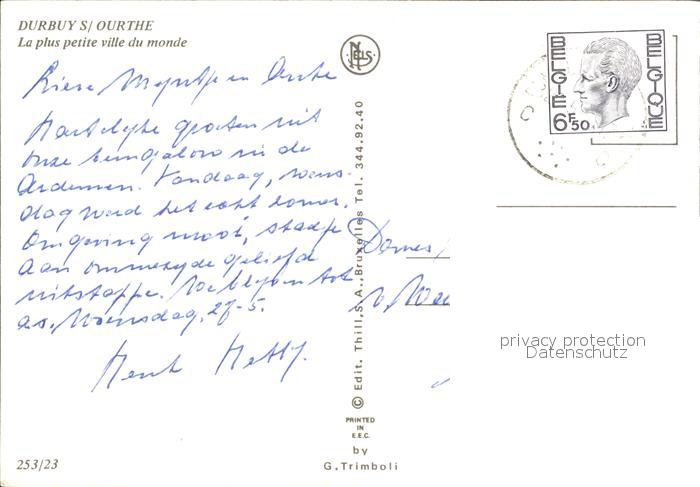 DURBUY S/ OURTHE
La plus petite ville du monde
NELS
BELGIE
BELGIQUE
6F50
en
Hartelijke groeten uit
onze bungalow in de
Ardennen. Vandaag, woens-
dag werd het echt zomer.
Omgeving mooi, stadje
aan ommezijde geliefd
uitstapje. We blijven tot
a.s. Woensdag, 27-5.
Henk Hetty.
Dames
© Edit. Thill, S.A., Bruxelles Tel. 344.92.40
PRINTED
IN
E.E.C.
by
G.Trimboli
253/23
privacy protection
Datenschutz